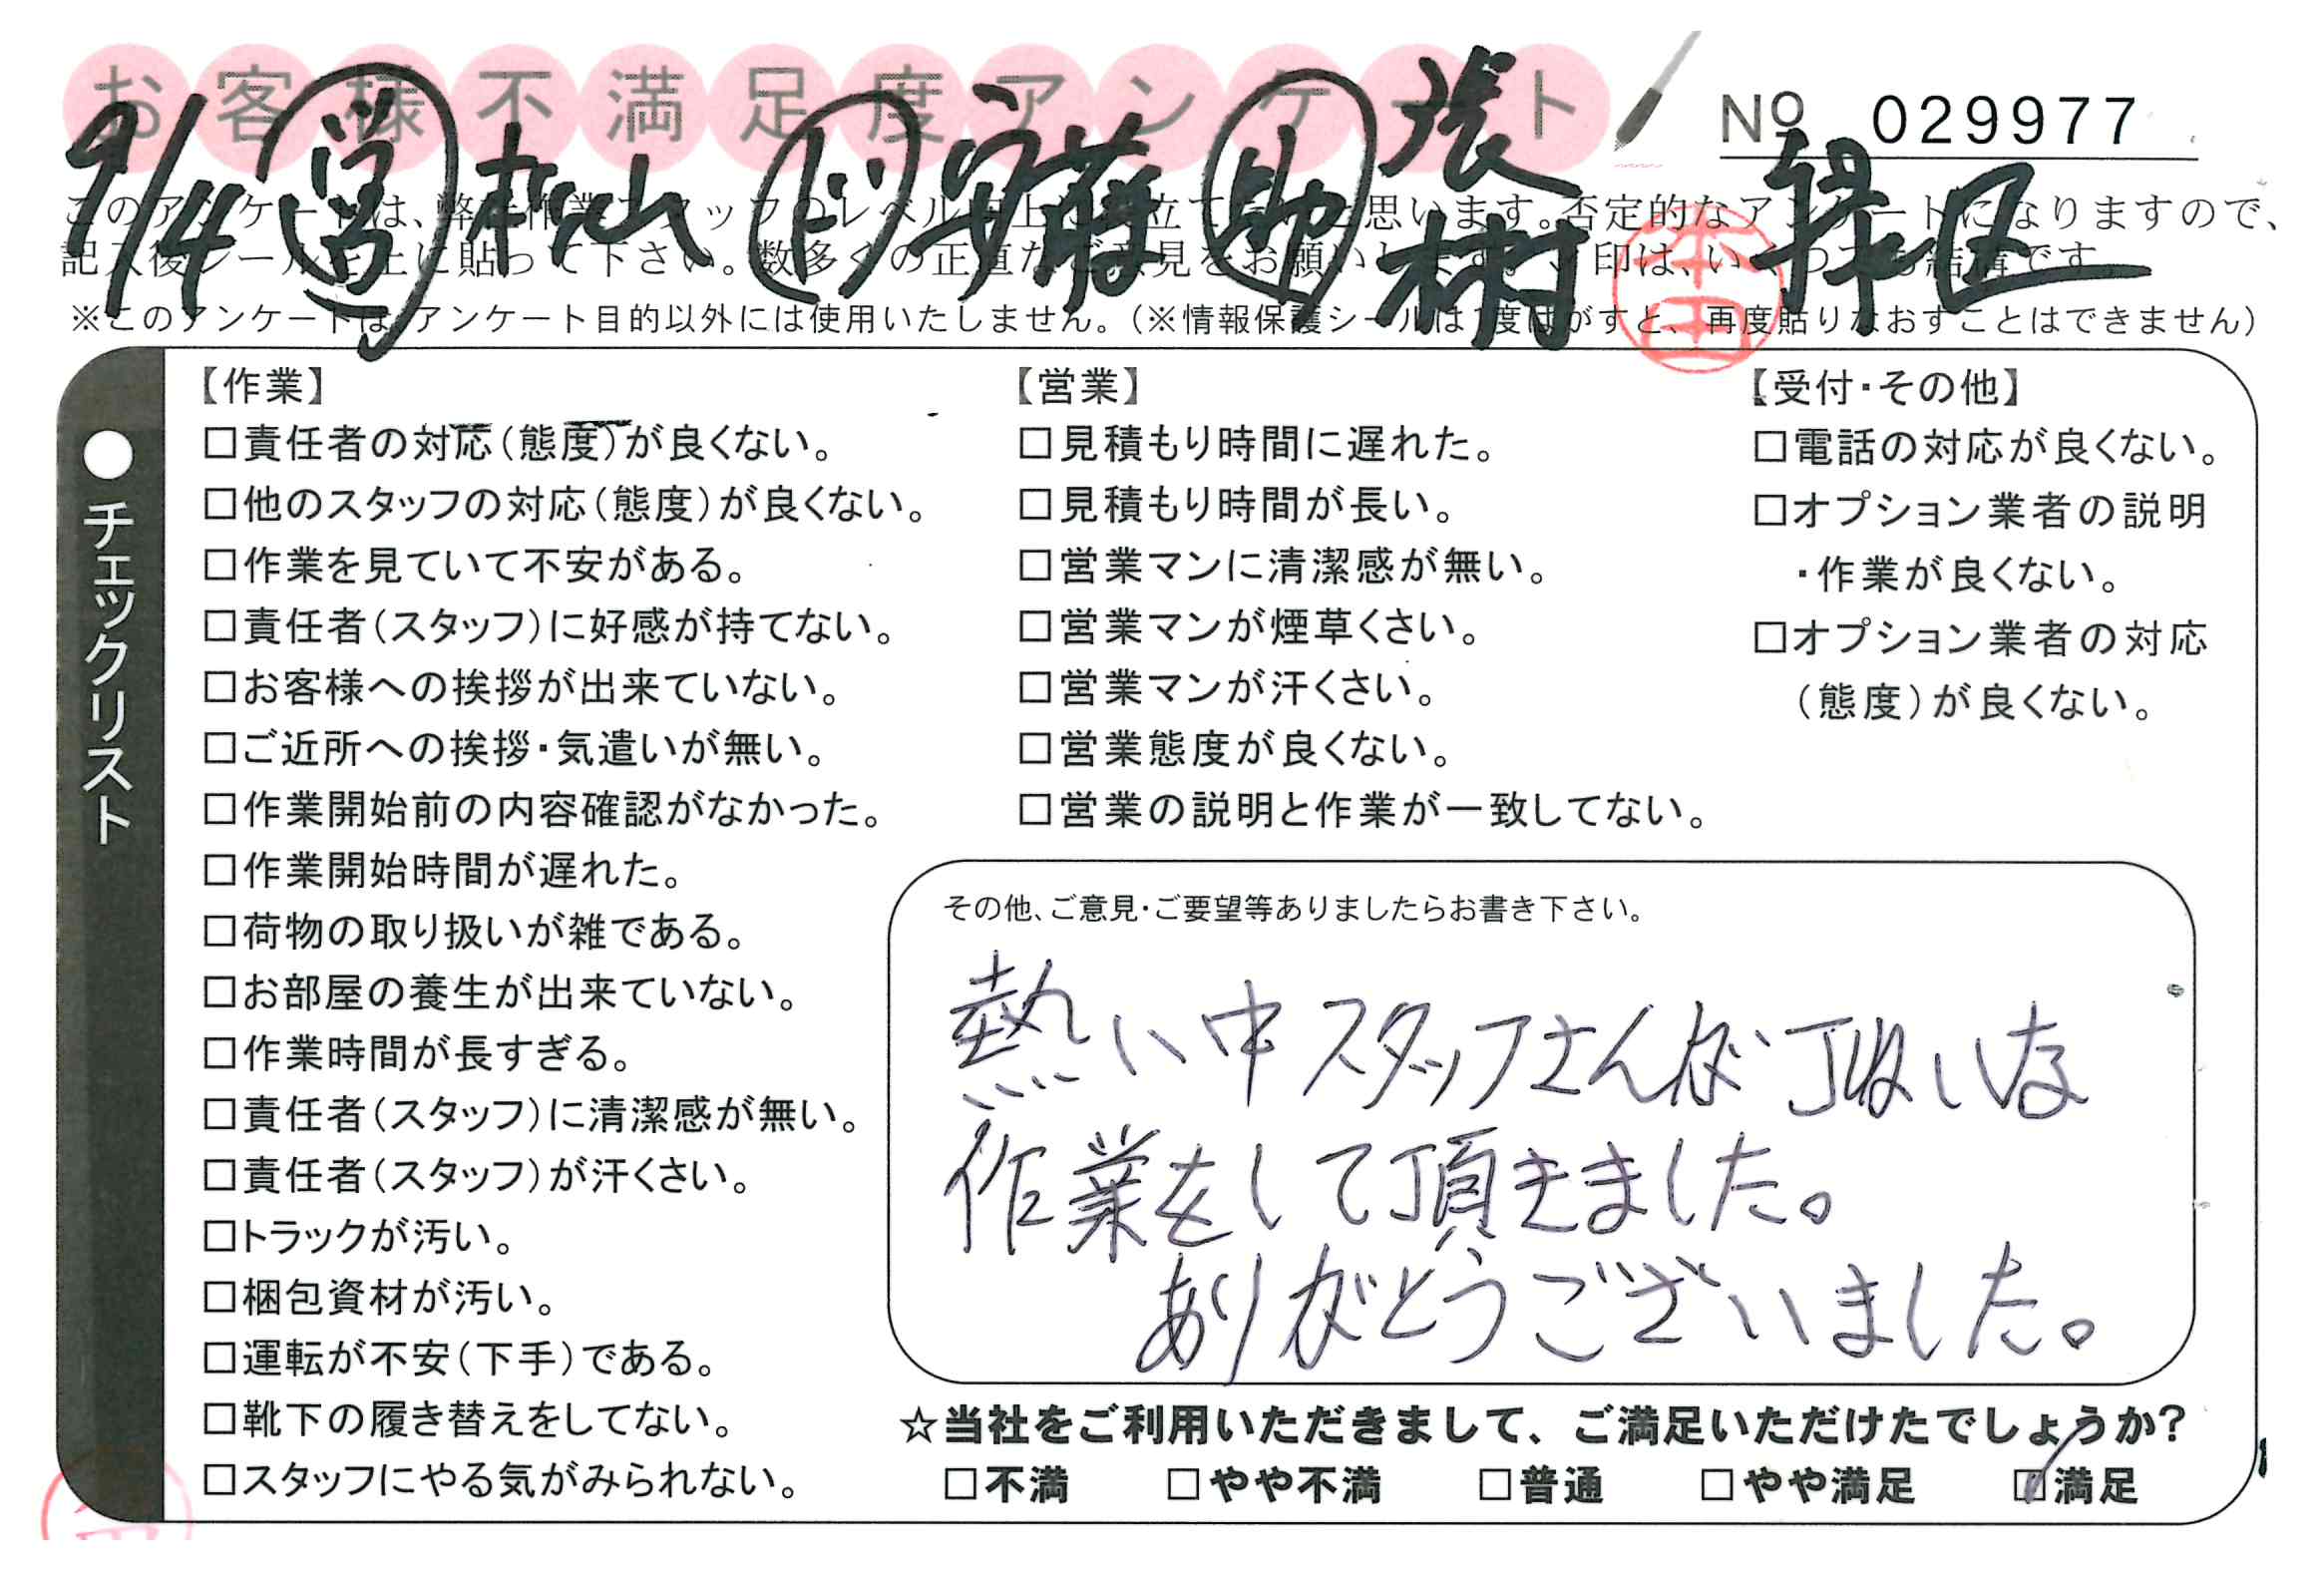 お客様不満足度アンケート
No 029977
9/4 営 松山 ド 安藤 助 張 樹 緑区
本田
このアンケートは、弊社作業スタッフのレベル向上に役立てたいと思います。否定的なアンケートになりますので、
記入後シールを上に貼って下さい。数多くの正直なご意見をお願いします。✓印は、いくつでも結構です。
※このアンケートは、アンケート目的以外には使用いたしません。(※情報保護シールは1度はがすと、再度貼りなおすことはできません)
●チェックリスト
【作業】
□責任者の対応(態度)が良くない。
□他のスタッフの対応(態度)が良くない。
□作業を見ていて不安がある。
□責任者(スタッフ)に好感が持てない。
□お客様への挨拶が出来ていない。
□ご近所への挨拶・気遣いが無い。
□作業開始前の内容確認がなかった。
□作業開始時間が遅れた。
□荷物の取り扱いが雑である。
□お部屋の養生が出来ていない。
□作業時間が長すぎる。
□責任者(スタッフ)に清潔感が無い。
□責任者(スタッフ)が汗くさい。
□トラックが汚い。
□梱包資材が汚い。
□運転が不安(下手)である。
□靴下の履き替えをしてない。
□スタッフにやる気がみられない。
【営業】
□見積もり時間に遅れた。
□見積もり時間が長い。
□営業マンに清潔感が無い。
□営業マンが煙草くさい。
□営業マンが汗くさい。
□営業態度が良くない。
□営業の説明と作業が一致してない。
【受付・その他】
□電話の対応が良くない。
□オプション業者の説明
・作業が良くない。
□オプション業者の対応
(態度)が良くない。
その他、ご意見・ご要望等ありましたらお書き下さい。
熱い中スタッフさんが丁ねいな
作業をして頂きました。
ありがとうございました。
☆当社をご利用いただきまして、ご満足いただけたでしょうか?
□不満 □やや不満 □普通 □やや満足 ☑満足